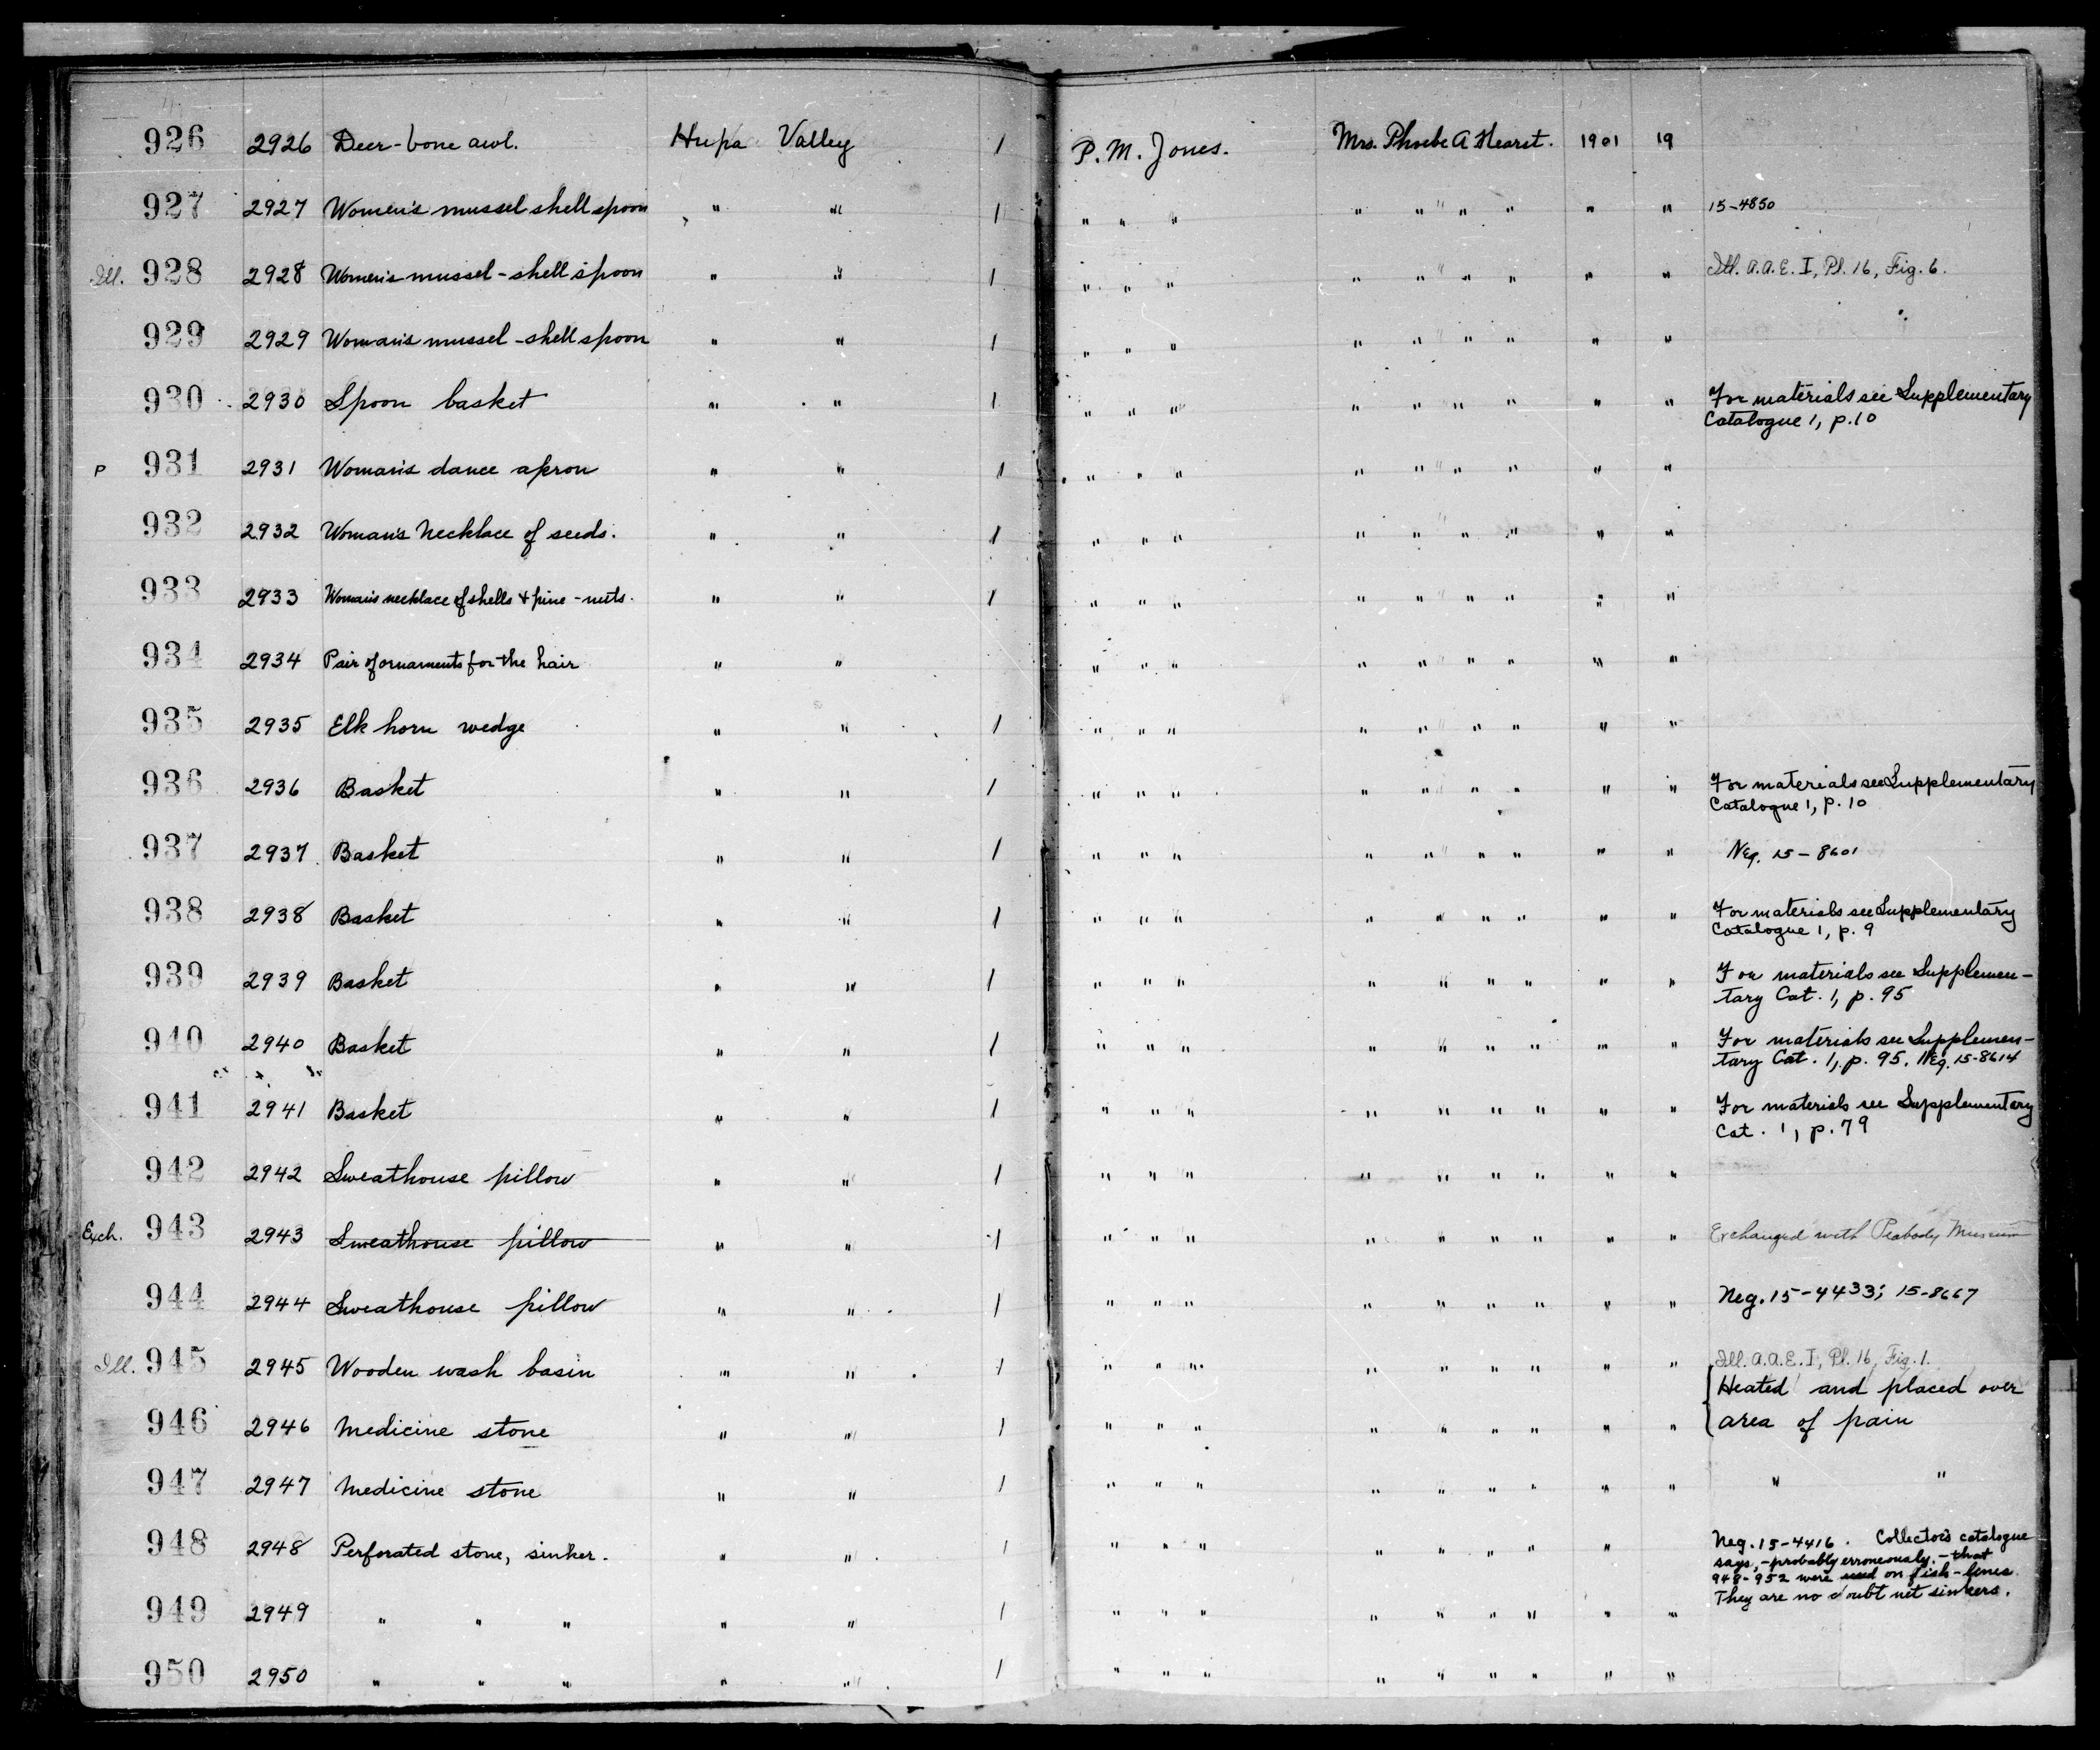 926 2926 Deer-bone awl. Hupa Valley 1 P. M. Jones. Mrs. Phoebe A Hearst. 1901 19
927 2927 Women's mussel shell spoon " " 1 " " " " " " " " " " 15-4850
Ill. 928 2928 Women's mussel-shell spoon " " 1 " " " " " " " " " " Ill. A.A.E. I, Pl. 16, Fig. 6.
929 2929 Woman's mussel-shell spoon " " 1 " " " " " " " " " "
930 2930 Spoon basket " " 1 " " " " " " " " " " For materials see Supplementary
Catalogue 1, p. 10
P 931 2931 Woman's dance apron " " 1 " " " " " " " " " "
932 2932 Woman's necklace of seeds. " " 1 " " " " " " " " " "
933 2933 Woman's necklace of shells & pine-nuts. " " 1 " " " " " " " " " "
934 2934 Pair of ornaments for the hair " " " " " " " " " " " "
935 2935 Elk horn wedge " " 1 " " " " " " " " " "
936 2936 Basket " " 1 " " " " " " " " " " For materials see Supplementary
Catalogue 1, p. 10
937 2937 Basket " " 1 " " " " " " " " " " Neg. 15-8601
938 2938 Basket " " 1 " " " " " " " " " For materials see Supplementary
Catalogue 1, p. 9
939 2939 Basket " " 1 " " " " " " " " " For materials see Supplemen-
tary Cat. 1, p. 95
940 2940 Basket " " 1 " " " " " " " " " For materials see Supplemen-
tary Cat. 1, p. 95. Neg. 15-8614
941 2941 Basket " " 1 " " " " " " " " " For materials see Supplementary
Cat. 1, p. 79
942 2942 Sweathouse pillow " " 1 " " " " " " " " "
Exch. 943 2943 Sweathouse pillow " " 1 " " " " " " " " " Exchanged with Peabody Museum
944 2944 Sweathouse pillow " " 1 " " " " " " " " " Neg. 15-4433; 15-8667
Ill. 945 2945 Wooden wash basin " " 1 " " " " " " " " " Ill. A.A.E. I, Pl. 16, Fig. 1.
Heated and placed over
946 2946 Medicine stone " " 1 " " " " " " " " " area of pain
947 2947 Medicine stone " " 1 " " " " " " " " " " "
948 2948 Perforated stone, sinker. " " 1 " " " " " " " " Neg. 15-4416. Collector's catalogue
says, -probably erroneously,- that
948-952 were used on fish-lines.
They are no doubt net sinkers.
949 2949 " " " " " 1 " " " " " " " " "
950 2950 " " " " " 1 " " " " " " " " "